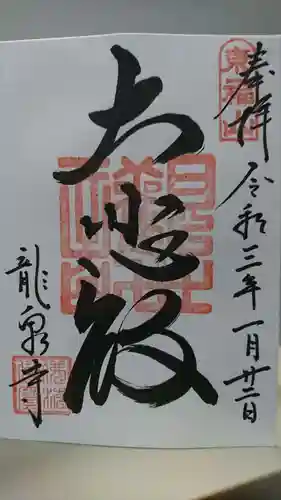 奉拝 令和三年一月廿二日
東福山
大悲殿
龍泉寺